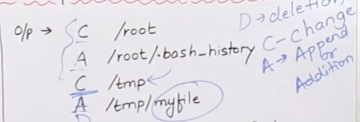 O/p → C /root
A /root/.bash_history
C /tmp ←
A /tmp/myfile
D
D → deletion
C - change
A → Append
or
Addition